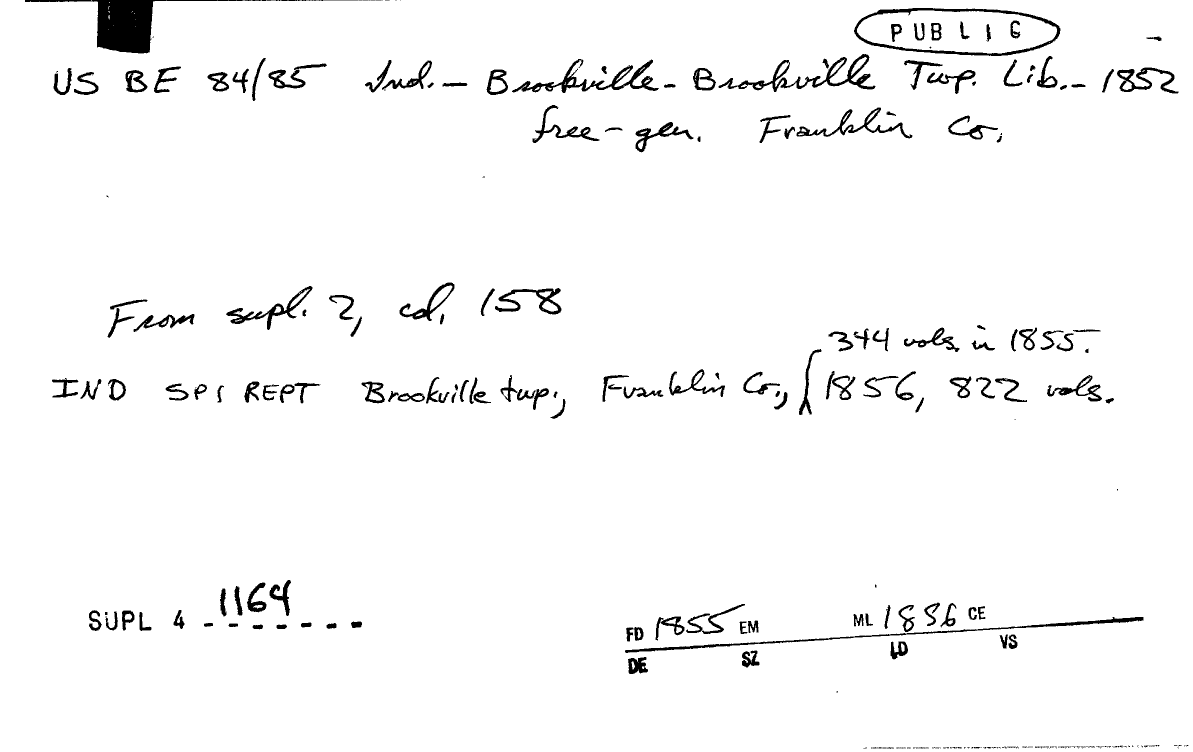 PUBLIC
US BE 84/85 Ind. - Brookville - Brookville Twp. Lib. - 1852
free - gen. Franklin Co.
From supl. 2, col. 158
344 vols. in 1855.
IND SPI REPT Brookville twp., Franklin Co., 1856, 822 vols.
SUPL 4 1164
FD 1855 EM ML 1886 CE
DE SZ LD VS